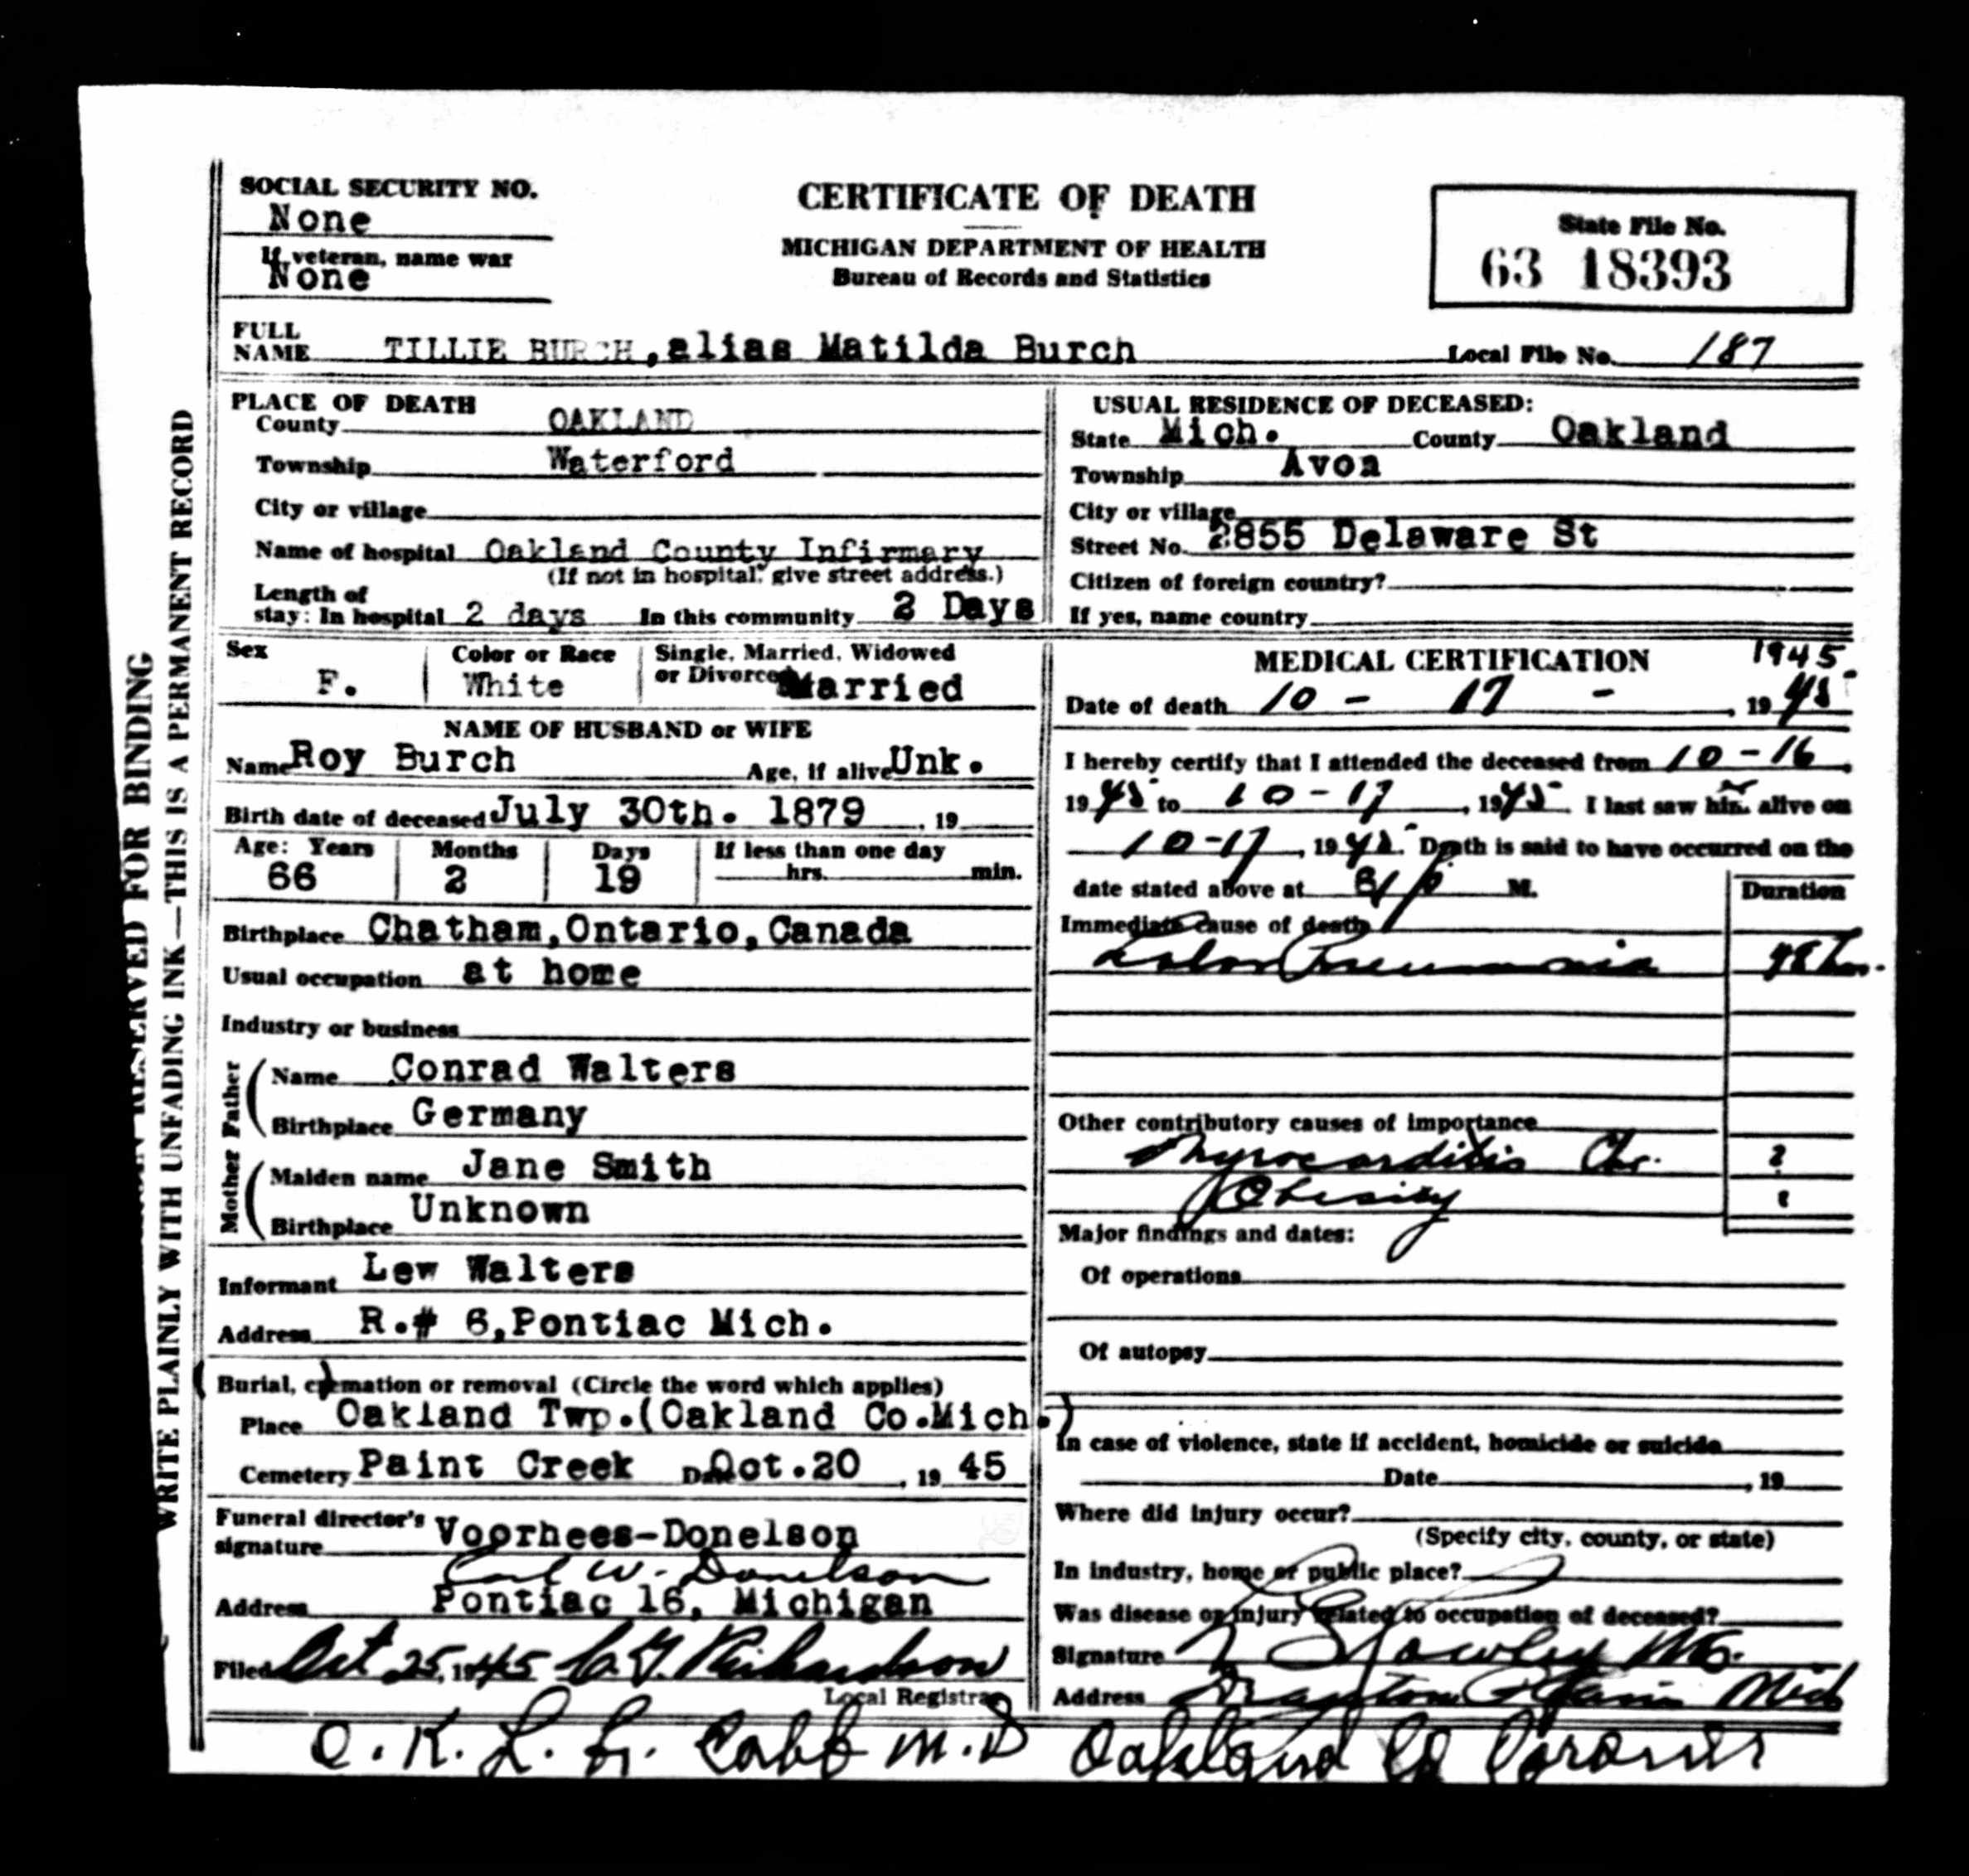 SOCIAL SECURITY NO.
None
If veteran, name war
None
CERTIFICATE OF DEATH
MICHIGAN DEPARTMENT OF HEALTH
Bureau of Records and Statistics
State File No.
63 18393
FULL NAME TILLIE BURCH, alias Matilda Burch
Local File No. 187
WRITE PLAINLY WITH UNFADING INK—THIS IS A PERMANENT RECORD
RESERVED FOR BINDING
PLACE OF DEATH
County OAKLAND
Township Waterford
City or village
Name of hospital Oakland County Infirmary
(If not in hospital, give street address.)
Length of
stay: In hospital 2 days In this community 2 Days
USUAL RESIDENCE OF DECEASED:
State Mich. County Oakland
Township Avon
City or village
Street No. 2855 Delaware St
Citizen of foreign country?
If yes, name country
Sex F.
Color or Race White
Single, Married, Widowed
or Divorced Married
NAME OF HUSBAND or WIFE
Name Roy Burch Age, if alive Unk.
Birth date of deceased July 30th. 1879 , 19
Age: Years Months Days If less than one day
66 2 19 hrs. min.
Birthplace Chatham, Ontario, Canada
Usual occupation at home
Industry or business
Father
Name Conrad Walters
Birthplace Germany
Mother
Maiden name Jane Smith
Birthplace Unknown
Informant Lew Walters
Address R.# 6, Pontiac Mich.
(Burial,) cremation or removal (Circle the word which applies)
Place Oakland Twp. (Oakland Co. Mich.)
Cemetery Paint Creek Date Oct. 20 , 19 45
Funeral director's
signature Voorhees-Donelson
Earl W. Donelson
Address Pontiac 16, Michigan
Filed Oct 25, 1945 C. G. Richardson
Local Registrar
MEDICAL CERTIFICATION 1945
Date of death 10 - 17 - , 19 45
I hereby certify that I attended the deceased from 10-16,
19 45 to 10-17, 19 45. I last saw him er alive on
10-17, 19 45. Death is said to have occurred on the
date stated above at P M.
Immediate cause of death Duration
Lobar Pneumonia 48 hrs.
Other contributory causes of importance
Myocarditis Chr. ?
Obesity
Major findings and dates:
Of operations
Of autopsy
In case of violence, state if accident, homicide or suicide
Date , 19
Where did injury occur?
(Specify city, county, or state)
In industry, home or public place?
Was disease or injury related to occupation of deceased?
Signature M.D.
Address Drayton Plains Mich
O.K. L. G. Cobb M.D Oakland Co Coroner